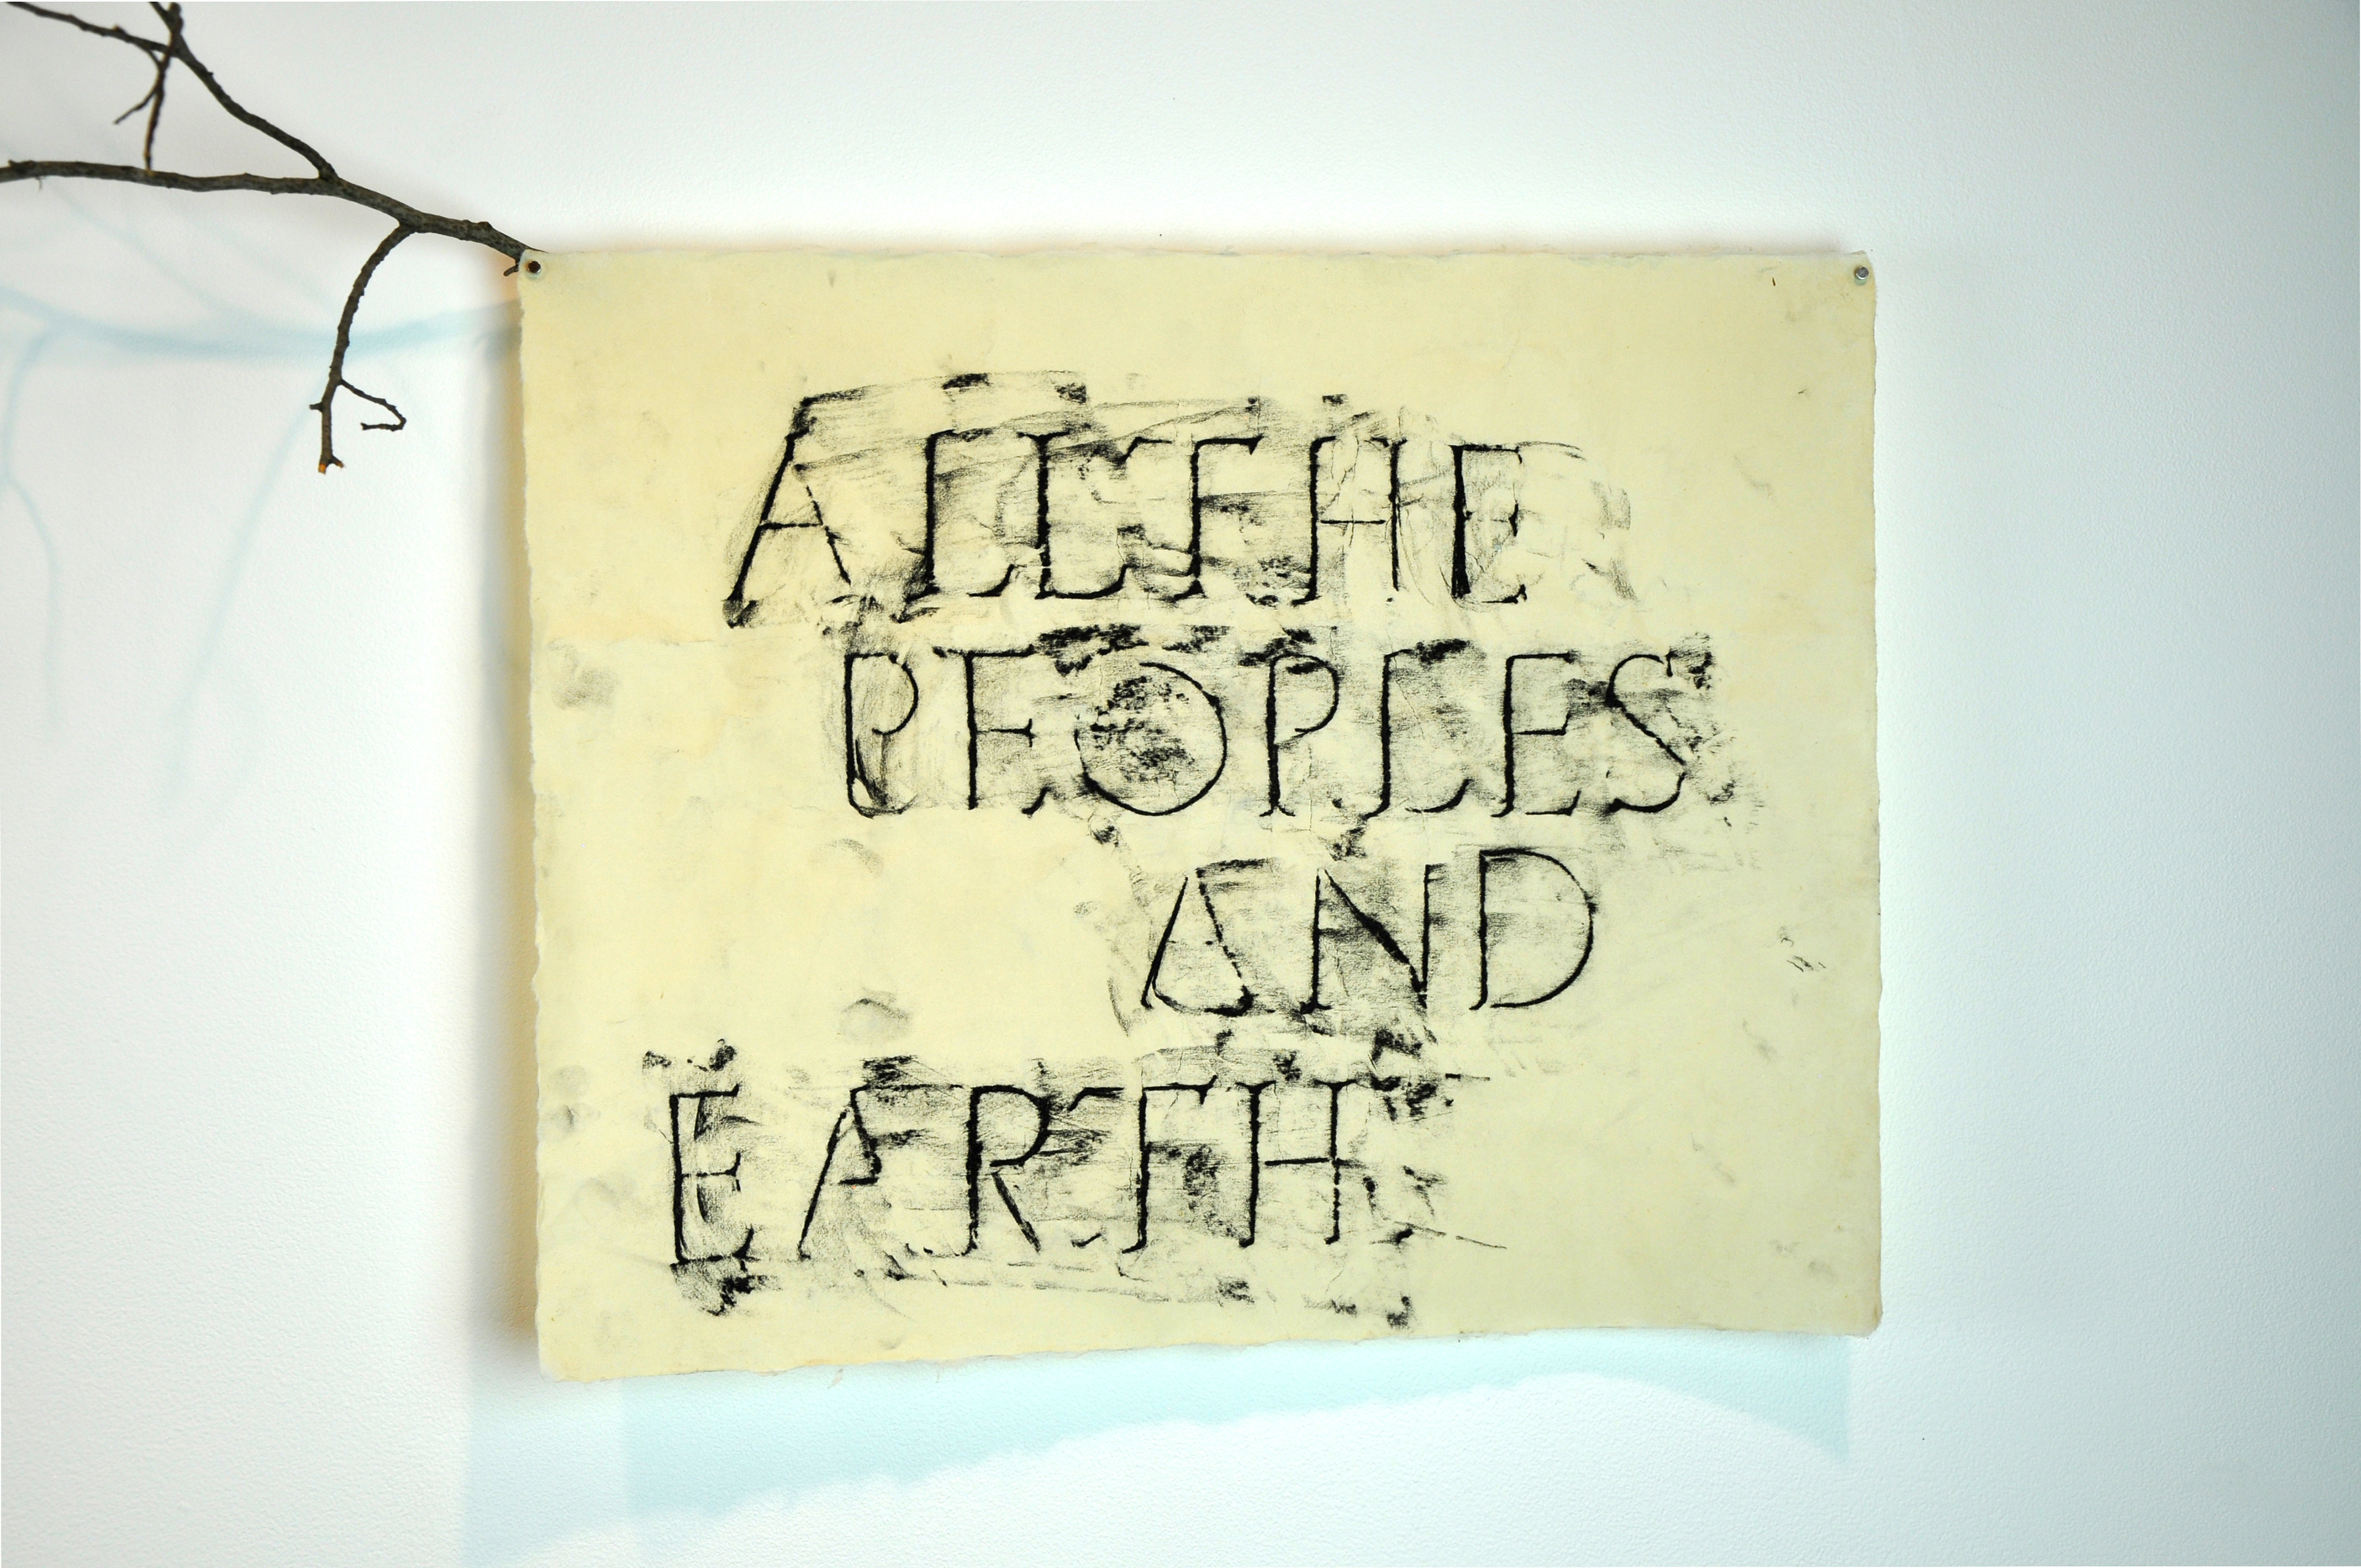 ALL THE
PEOPLES
AND
EARTH